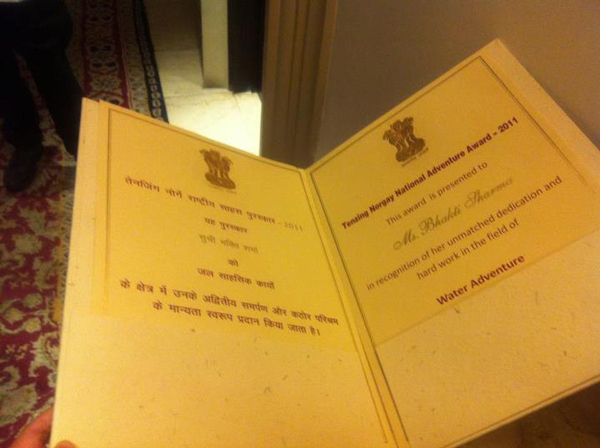 तेनजिंग नोर्गे राष्ट्रीय साहस पुरस्कार - 2011
यह पुरस्कार
सुश्री भक्ति शर्मा
को
जल साहसिक कार्यों
के क्षेत्र में उनके अद्वितीय समर्पण और कठोर परिश्रम
के मान्यता स्वरूप प्रदान किया जाता है।
Tenzing Norgay National Adventure Award - 2011
This award is presented to
Ms. Bhakti Sharma
in recognition of her unmatched dedication and
hard work in the field of
Water Adventure